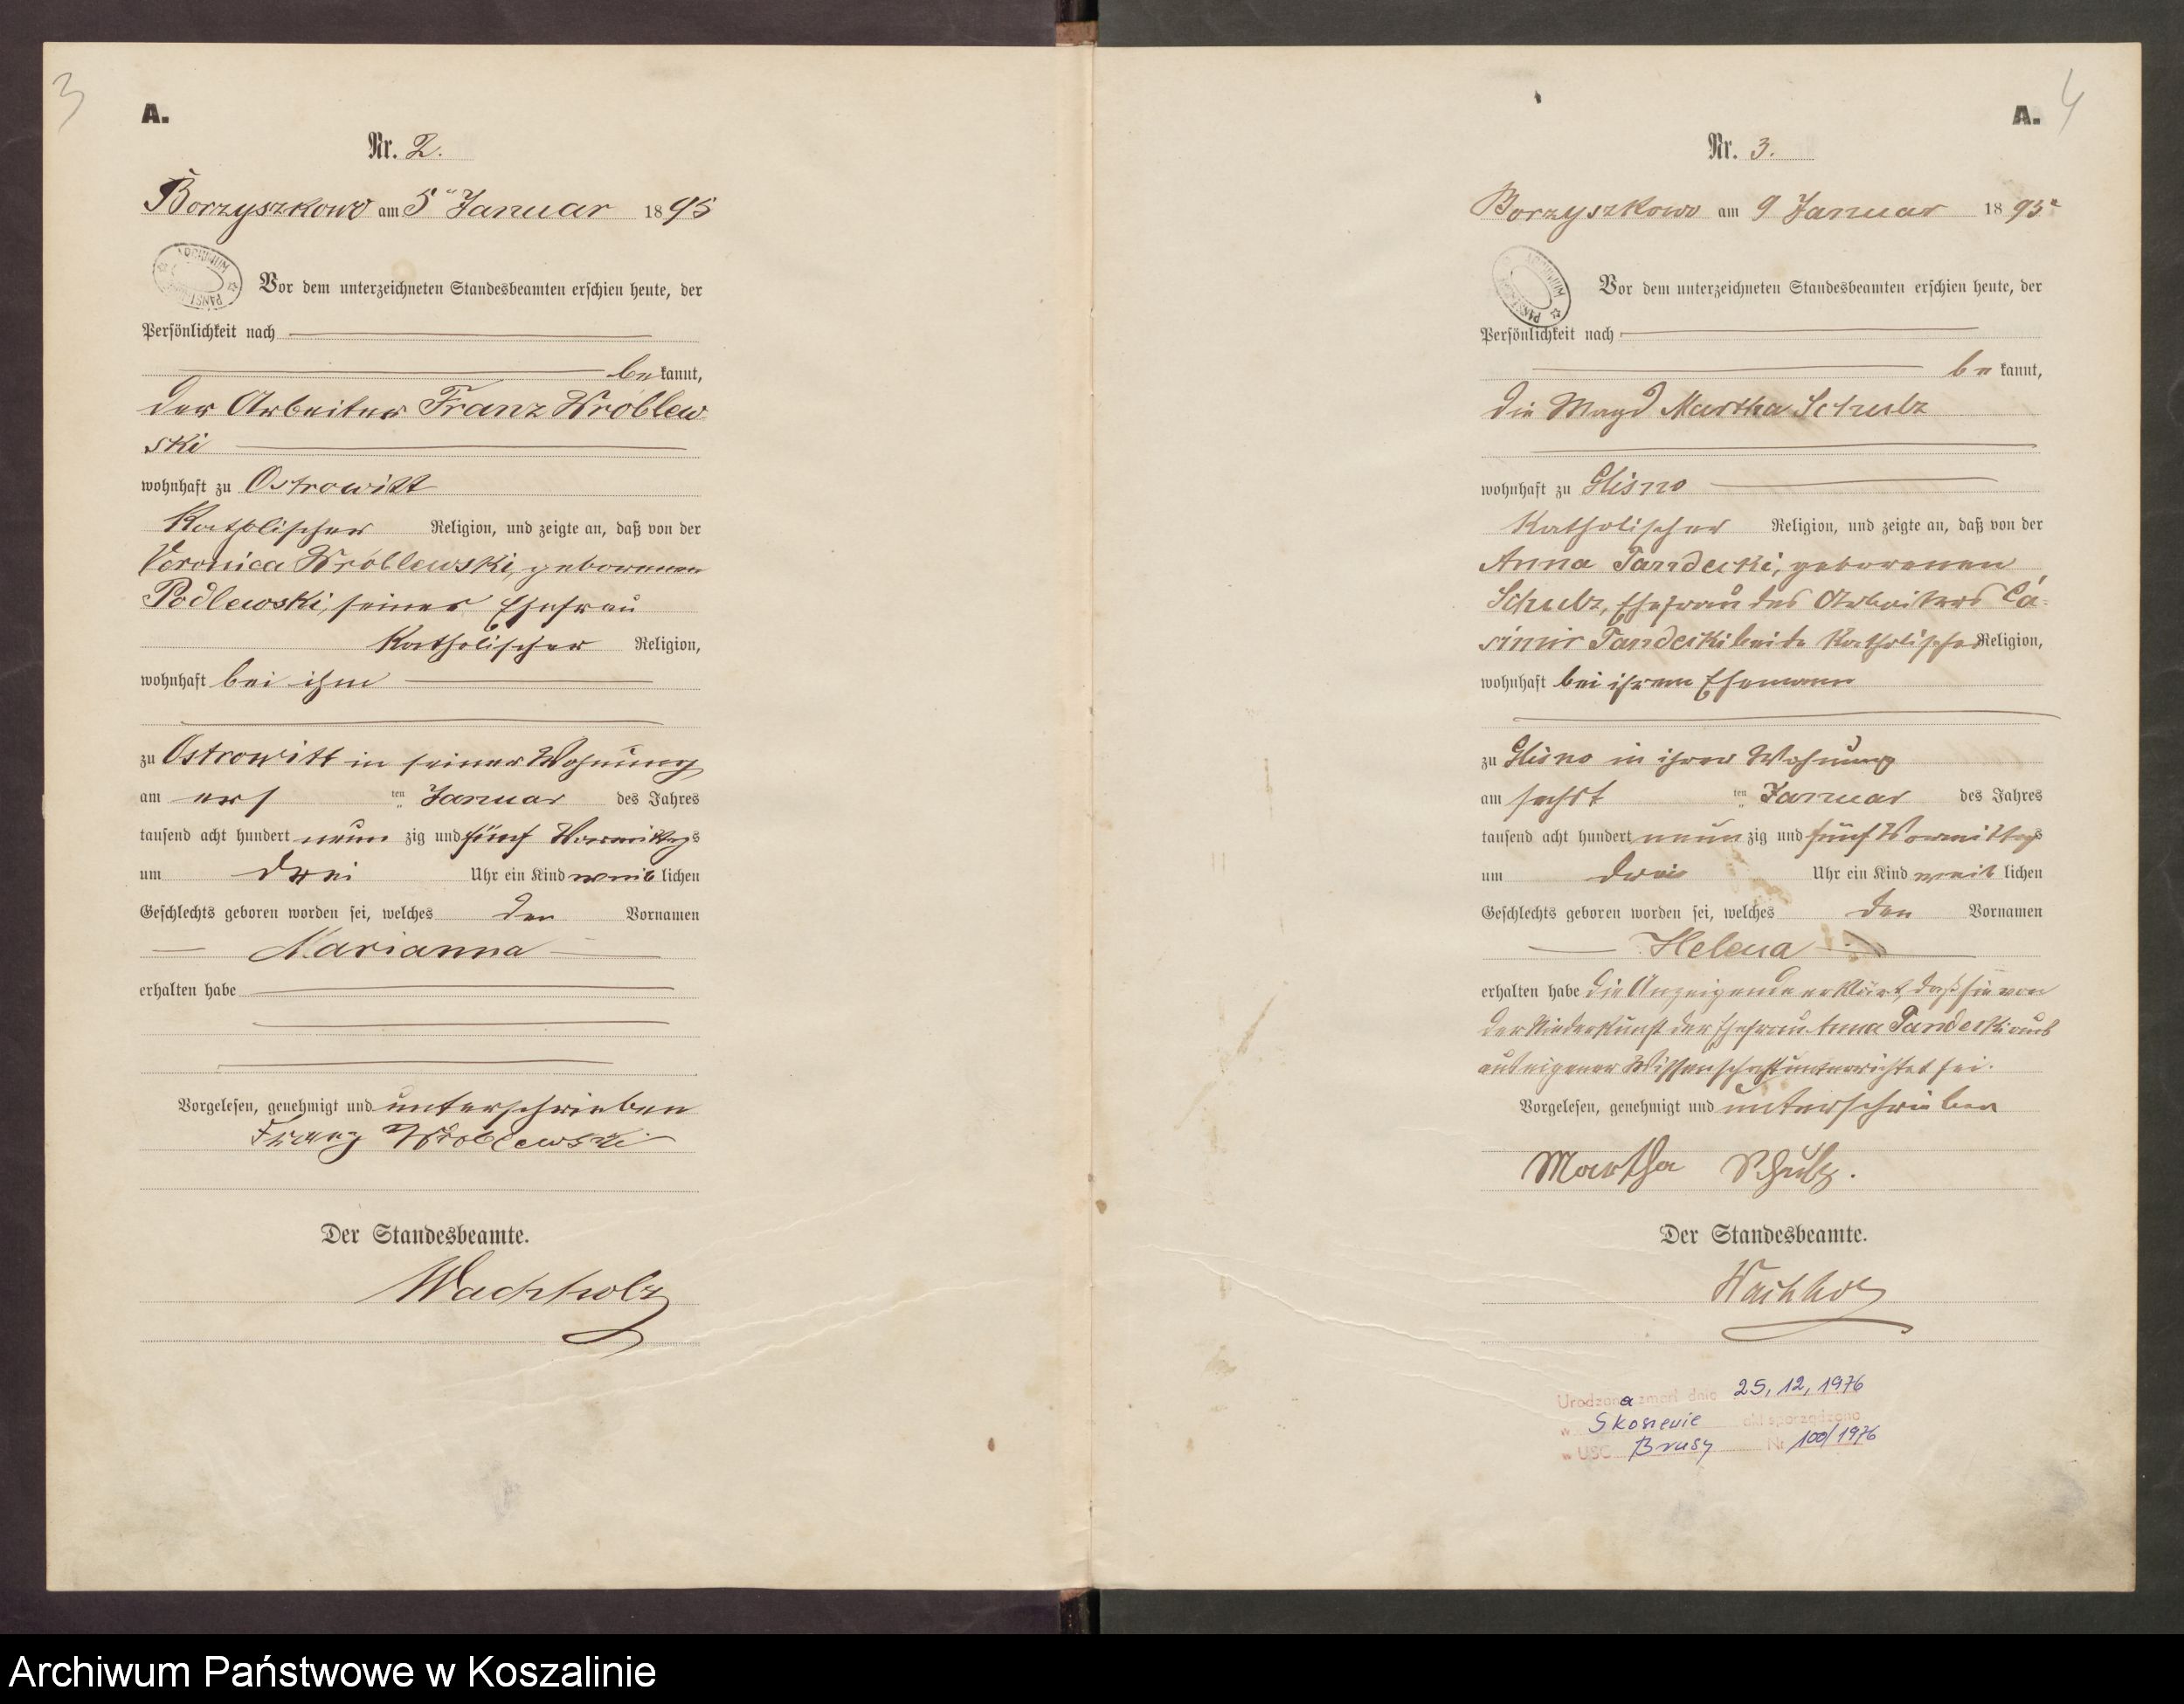 3
A.
Nr. 2.
Borzyszkowo am 5ten Januar 1895
Vor dem unterzeichneten Standesbeamten erschien heute, der
Persönlichkeit nach
be kannt,
der Arbeiter Franz Wróblew
ski
wohnhaft zu Ostrowitt
Katholischer Religion, und zeigte an, daß von der
Veronica Wróblewski, geborenen
Podlewski, seiner Ehefrau
Katholischer Religion,
wohnhaft bei ihm
zu Ostrowitt in seiner Wohnung
am erst ten Januar des Jahres
tausend acht hundert neun zig und fünf Vormittags
um drei Uhr ein Kind weib lichen
Geschlechts geboren worden sei, welches den Vornamen
Marianna
erhalten habe
Vorgelesen, genehmigt und unterschrieben
Franz Wróblewski
Der Standesbeamte.
Wachholz
4
A.
Nr. 3.
Borzyszkowo am 9 Januar 1895
Vor dem unterzeichneten Standesbeamten erschien heute, der
Persönlichkeit nach
be kannt,
die Magd Martha Schulz
wohnhaft zu Glisno
Katholischer Religion, und zeigte an, daß von der
Anna Pandecki, geborenen
Schulz, Ehefrau des Arbeiters Ca-
simir Pandecki beide Katholischer Religion,
wohnhaft bei ihrem Ehemann
zu Glisno in ihrer Wohnung
am sechst ten Januar des Jahres
tausend acht hundert neun zig und fünf Vormittags
um drei Uhr ein Kind weib lichen
Geschlechts geboren worden sei, welches den Vornamen
Helena
erhalten habe die Anzeigende erklärt, daß sie von
der Niederkunft der Ehefrau Anna Pandecki
aus eigener Wissenschaft unterrichtet sei.
Vorgelesen, genehmigt und unterschrieben
Martha Schulz.
Der Standesbeamte.
Wachholz
Urodzona zmarł dnia 25,12,1976
w Skoszewie akt sporządzono
w USC Brusy Nr 100/1976
Archiwum Państwowe w Koszalinie